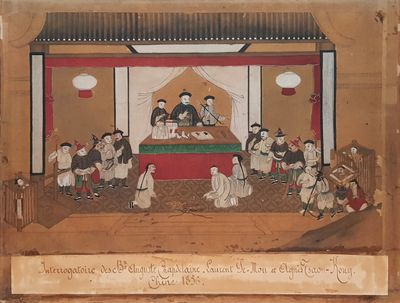 Interrogatoire des Bx Auguste Chapdelaine, Laurent Pe-Mou et Agnès Tsaou-Kouy.
Chine 1856.